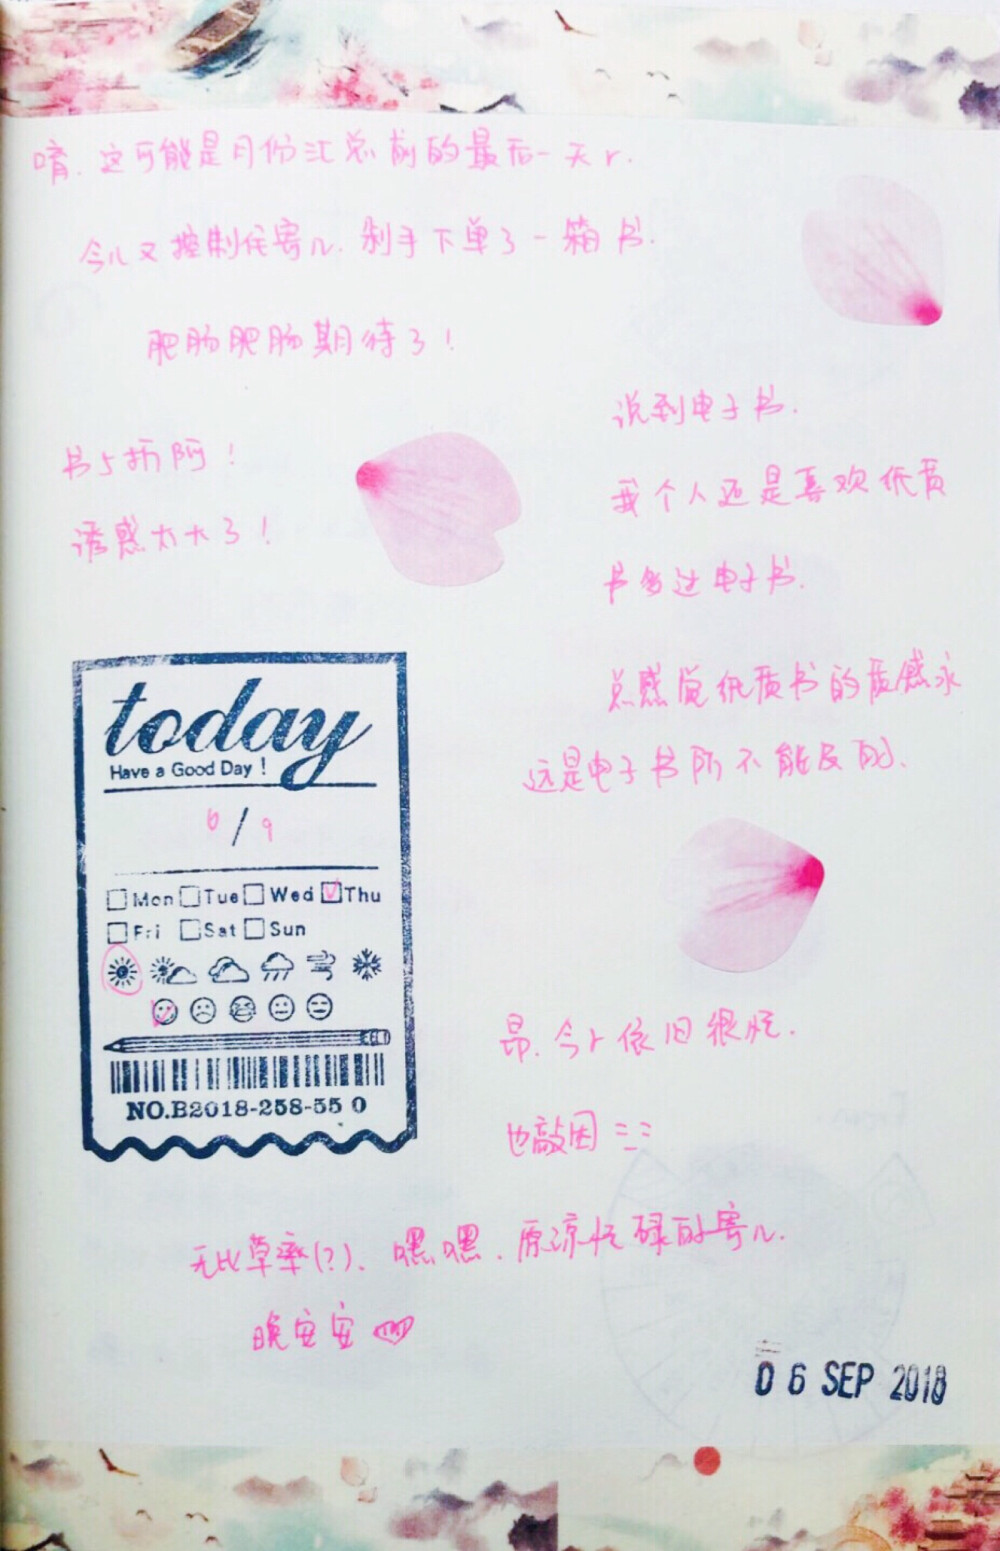 唷.这可能是月份汇总前的最后一天r.
今儿又控制住寄几.剁手下单了一箱书.
肥肠肥肠期待了!
书5折阿!
诱惑太大了!
说到电子书.
我个人还是喜欢纸质
书多过电子书.
总感觉纸质书的质感永
远是电子书所不能及的.
today
Have a Good Day!
6/9
Mon Tue Wed Thu
Fri Sat Sun
NO.B2018-258-55 0
昂.今r依旧很忙.
也敲困
无比草率(?)、嘿嘿.原凉忙碌的寄几.
晚安安
06 SEP 2018